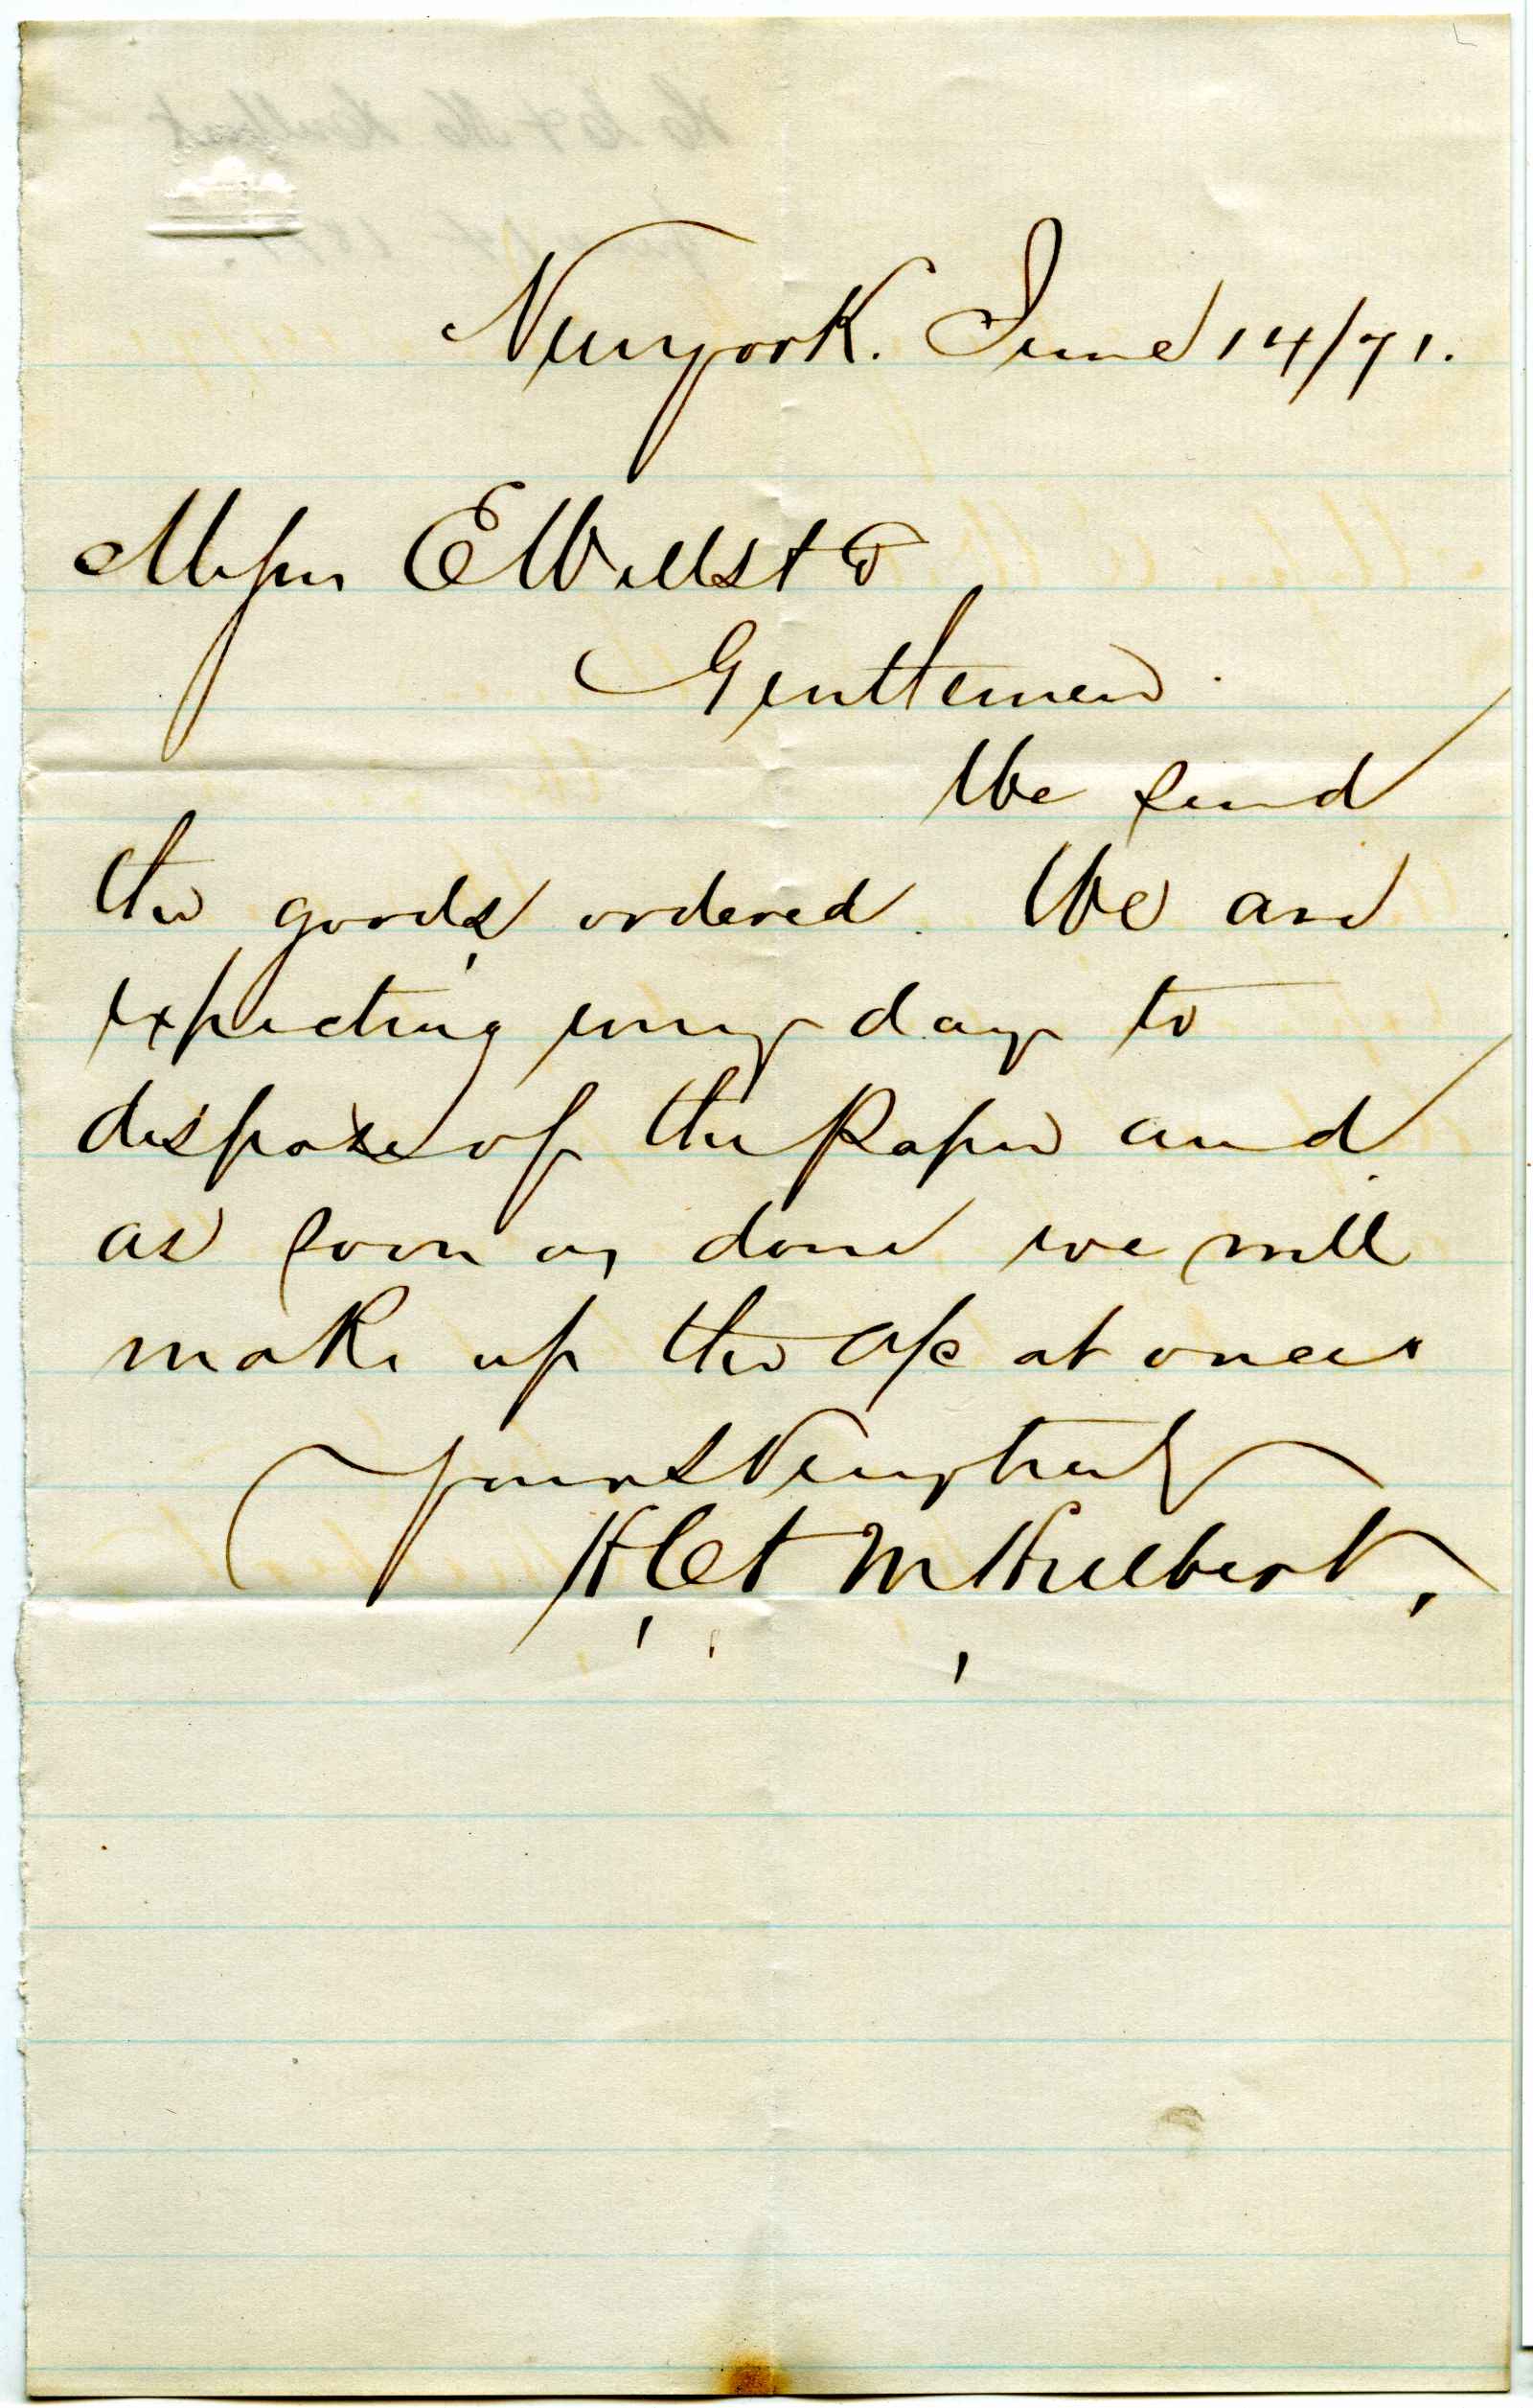 New york. June 14/71.
Messrs E Wells & Co
Gentlemen.
We send
the goods ordered. We are
expecting every day to
dispose of the Paper and
as soon as done we will
make up the a/c at once.
Yours Very truly
H. C. & M. Hulbert.